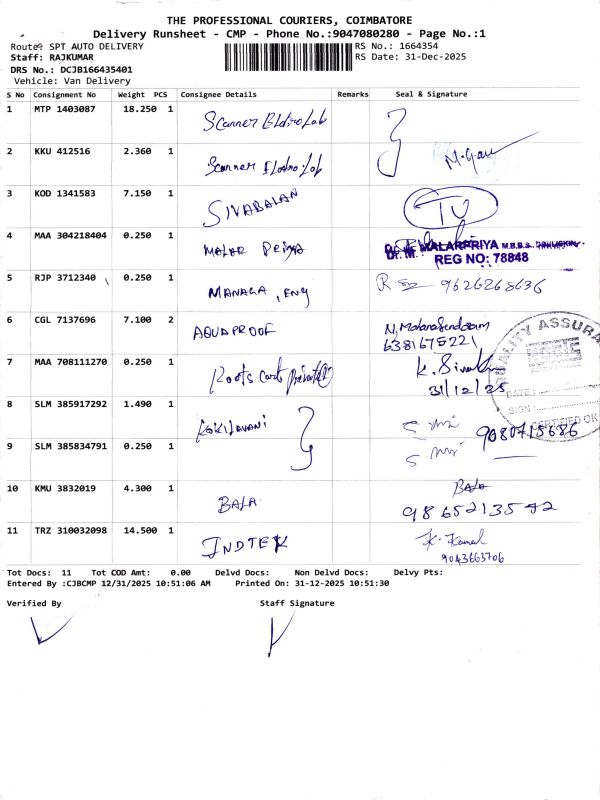 THE PROFESSIONAL COURIERS, COIMBATORE
Delivery Runsheet - CMP - Phone No.:9047080280 - Page No.:1
Route: SPT AUTO DELIVERY RS No.: 1664354
Staff: RAJKUMAR RS Date: 31-Dec-2025
DRS No.: DCJB166435401
Vehicle: Van Delivery
S No Consignment No Weight PCS Consignee Details Remarks Seal & Signature
1 MTP 1403087 18.250 1 Scanner Lab
2 KKU 412516 2.360 1 Scanner Lab
3 KOD 1341583 7.150 1 SIVABALAN TU
4 MAA 304218404 0.250 1 MALAR PRIYA Dr. M. MALARPRIYA M.B.B.S.
REG NO: 78848
5 RJP 3712340 0.250 1 MANAGA, ENG 9626268636
6 CGL 7137696 7.100 2 AQUAPROOF
6381675221
7 MAA 708111270 0.250 1 Roots cast private K. Siva
31/12/25
QUALITY ASSURA
DATE:
SIGN:
CERTIFIED OK
8 SLM 385917292 1.490 1 KOKILAVANI
9080715686
9 SLM 385834791 0.250 1
10 KMU 3832019 4.300 1 BALA Bala
9865213542
11 TRZ 310032098 14.500 1 INDTEK K. Kamal
9043665706
Tot Docs: 11 Tot COD Amt: 0.00 Delvd Docs: Non Delvd Docs: Delvy Pts:
Entered By :CJBCMP 12/31/2025 10:51:06 AM Printed On: 31-12-2025 10:51:30
Verified By Staff Signature